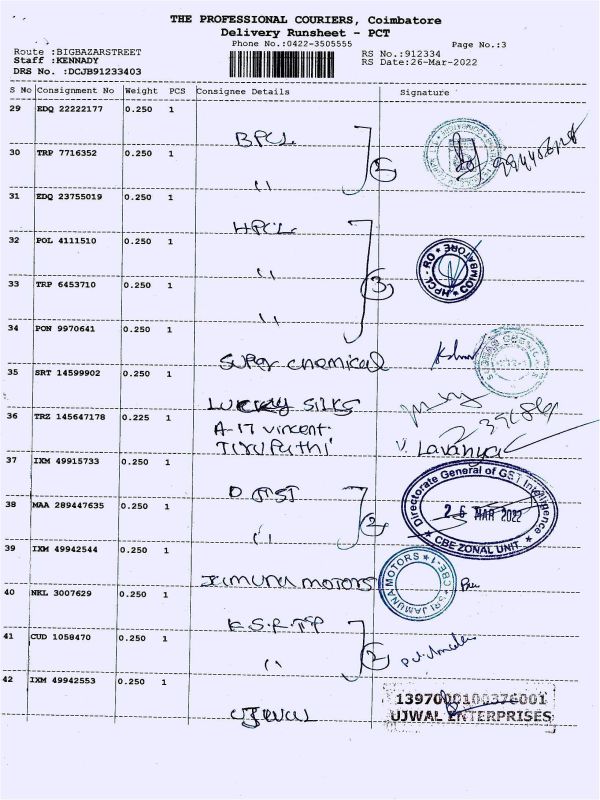 THE PROFESSIONAL COURIERS, Coimbatore
Delivery Runsheet - PCT
Phone No.:0422-3505555
Page No.:3
Route :BIGBAZARSTREET
Staff :KENNADY
DRS No. :DCJB91233403
RS No.:912334
RS Date:26-Mar-2022
S No Consignment No Weight PCS Consignee Details Signature
29 EDQ 22222177 0.250 1
BPCL
30 TRP 7716352 0.250 1
"
2
31 EDQ 23755019 0.250 1
HPCL
32 POL 4111510 0.250 1
"
HPCL - RO COIMBATORE
33 TRP 6453710 0.250 1
"
3
34 PON 9970641 0.250 1
Super chemical
35 SRT 14599902 0.250 1
Lucky silks
36 TRZ 145647178 0.225 1
A-17 vincent
Tirupathi
V. Lavanya
37 IXM 49915733 0.250 1
Directorate General of GST Intelligence
26 MAR 2022
CBE ZONAL UNIT
38 MAA 289447635 0.250 1
"
2
39 IXM 49942544 0.250 1
MOTORS
SRI JAMUNA MOTORS * CBE-1
40 NKL 3007629 0.250 1
41 CUD 1058470 0.250 1
"
2
42 IXM 49942553 0.250 1
1397000100376001
UJWAL ENTERPRISES